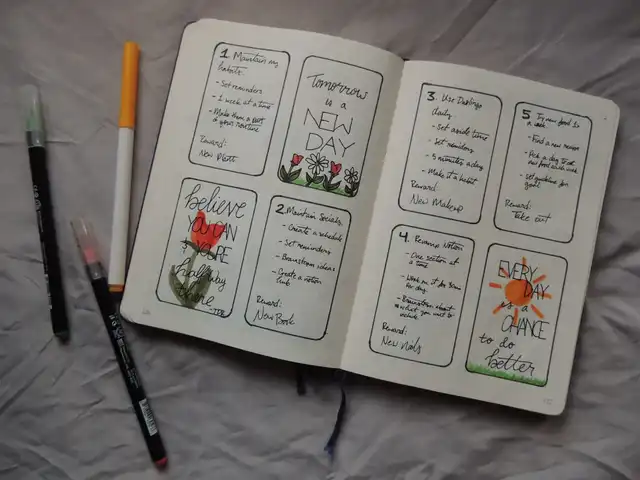 1 Maintain my
habits.
- Set reminders
- 1 week at a time
- Make them a part
of your routine
Reward:
New Plant
Tomorrow
is a
NEW
DAY
believe
YOU CAN
& YOU'RE
halfway
there
-TR
2. Maintain Socials
- Create a schedule
- Set reminders
- Brainstorm ideas
- Create a notion
Reward:
New Book
3. Use Duolingo
daily
- Set aside time
- Set reminders
- 5 minutes a day
- Make it a habit
Reward:
New Makeup
4. Revamp Notion
- One section at
a time
- Work on it for
- Brainstorm
what you want to
Reward:
New Nails
5. Try new food 1x
a week
- Find a new
- Pick a day
- Set
Reward:
Take out
EVERY
DAY
is a
CHANCE
to do
better